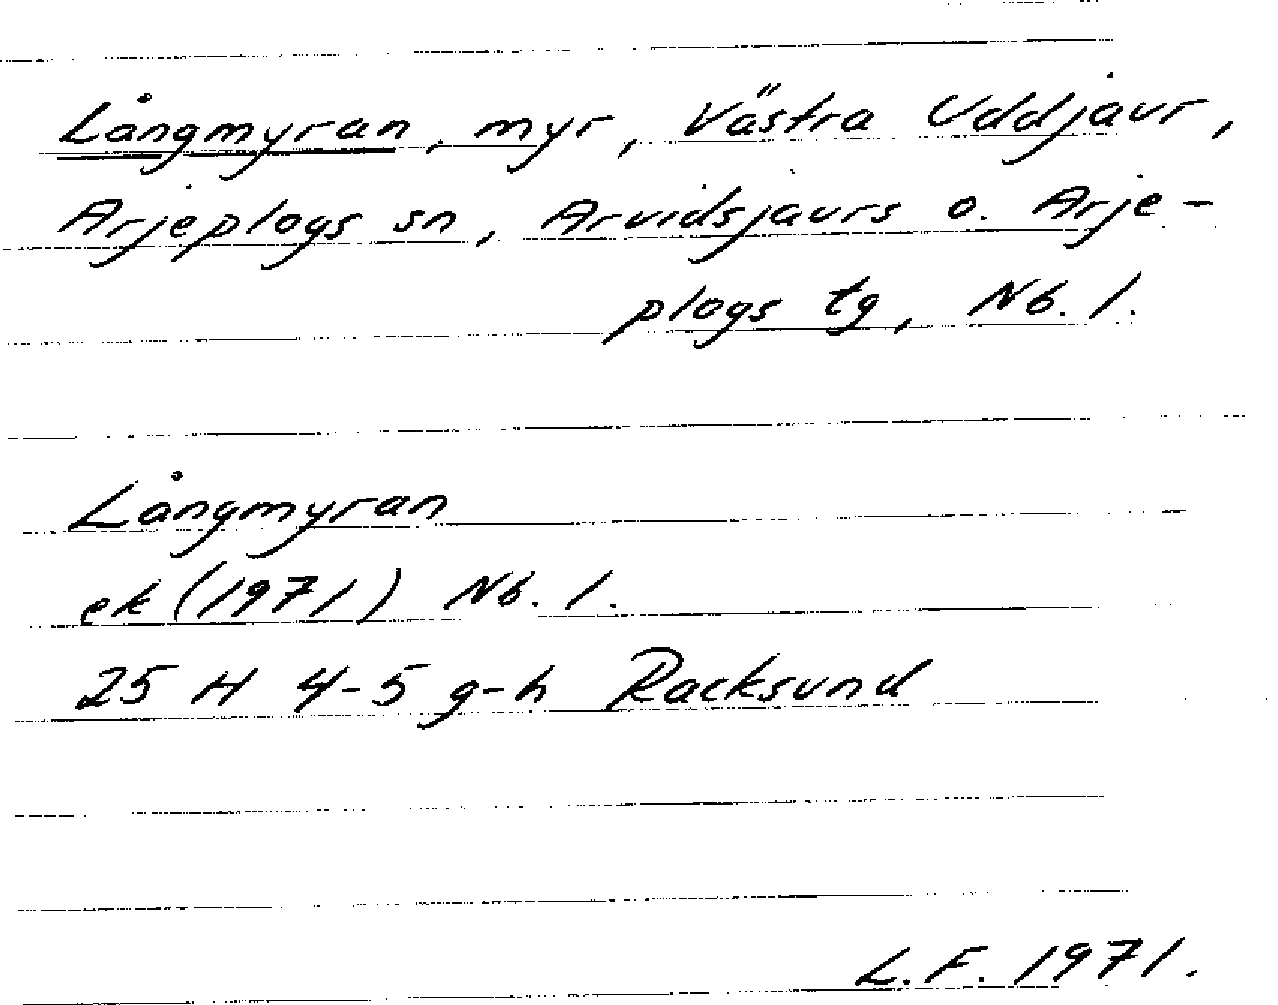 Långmyran, myr, Västra Uddjaur,
Arjeplogs sn, Arvidsjaurs o. Arje-
plogs tg, Nb. l.
Långmyran
ek (1971) Nb. l.
25 H 4-5 g-h Racksund
L.F. 1971.